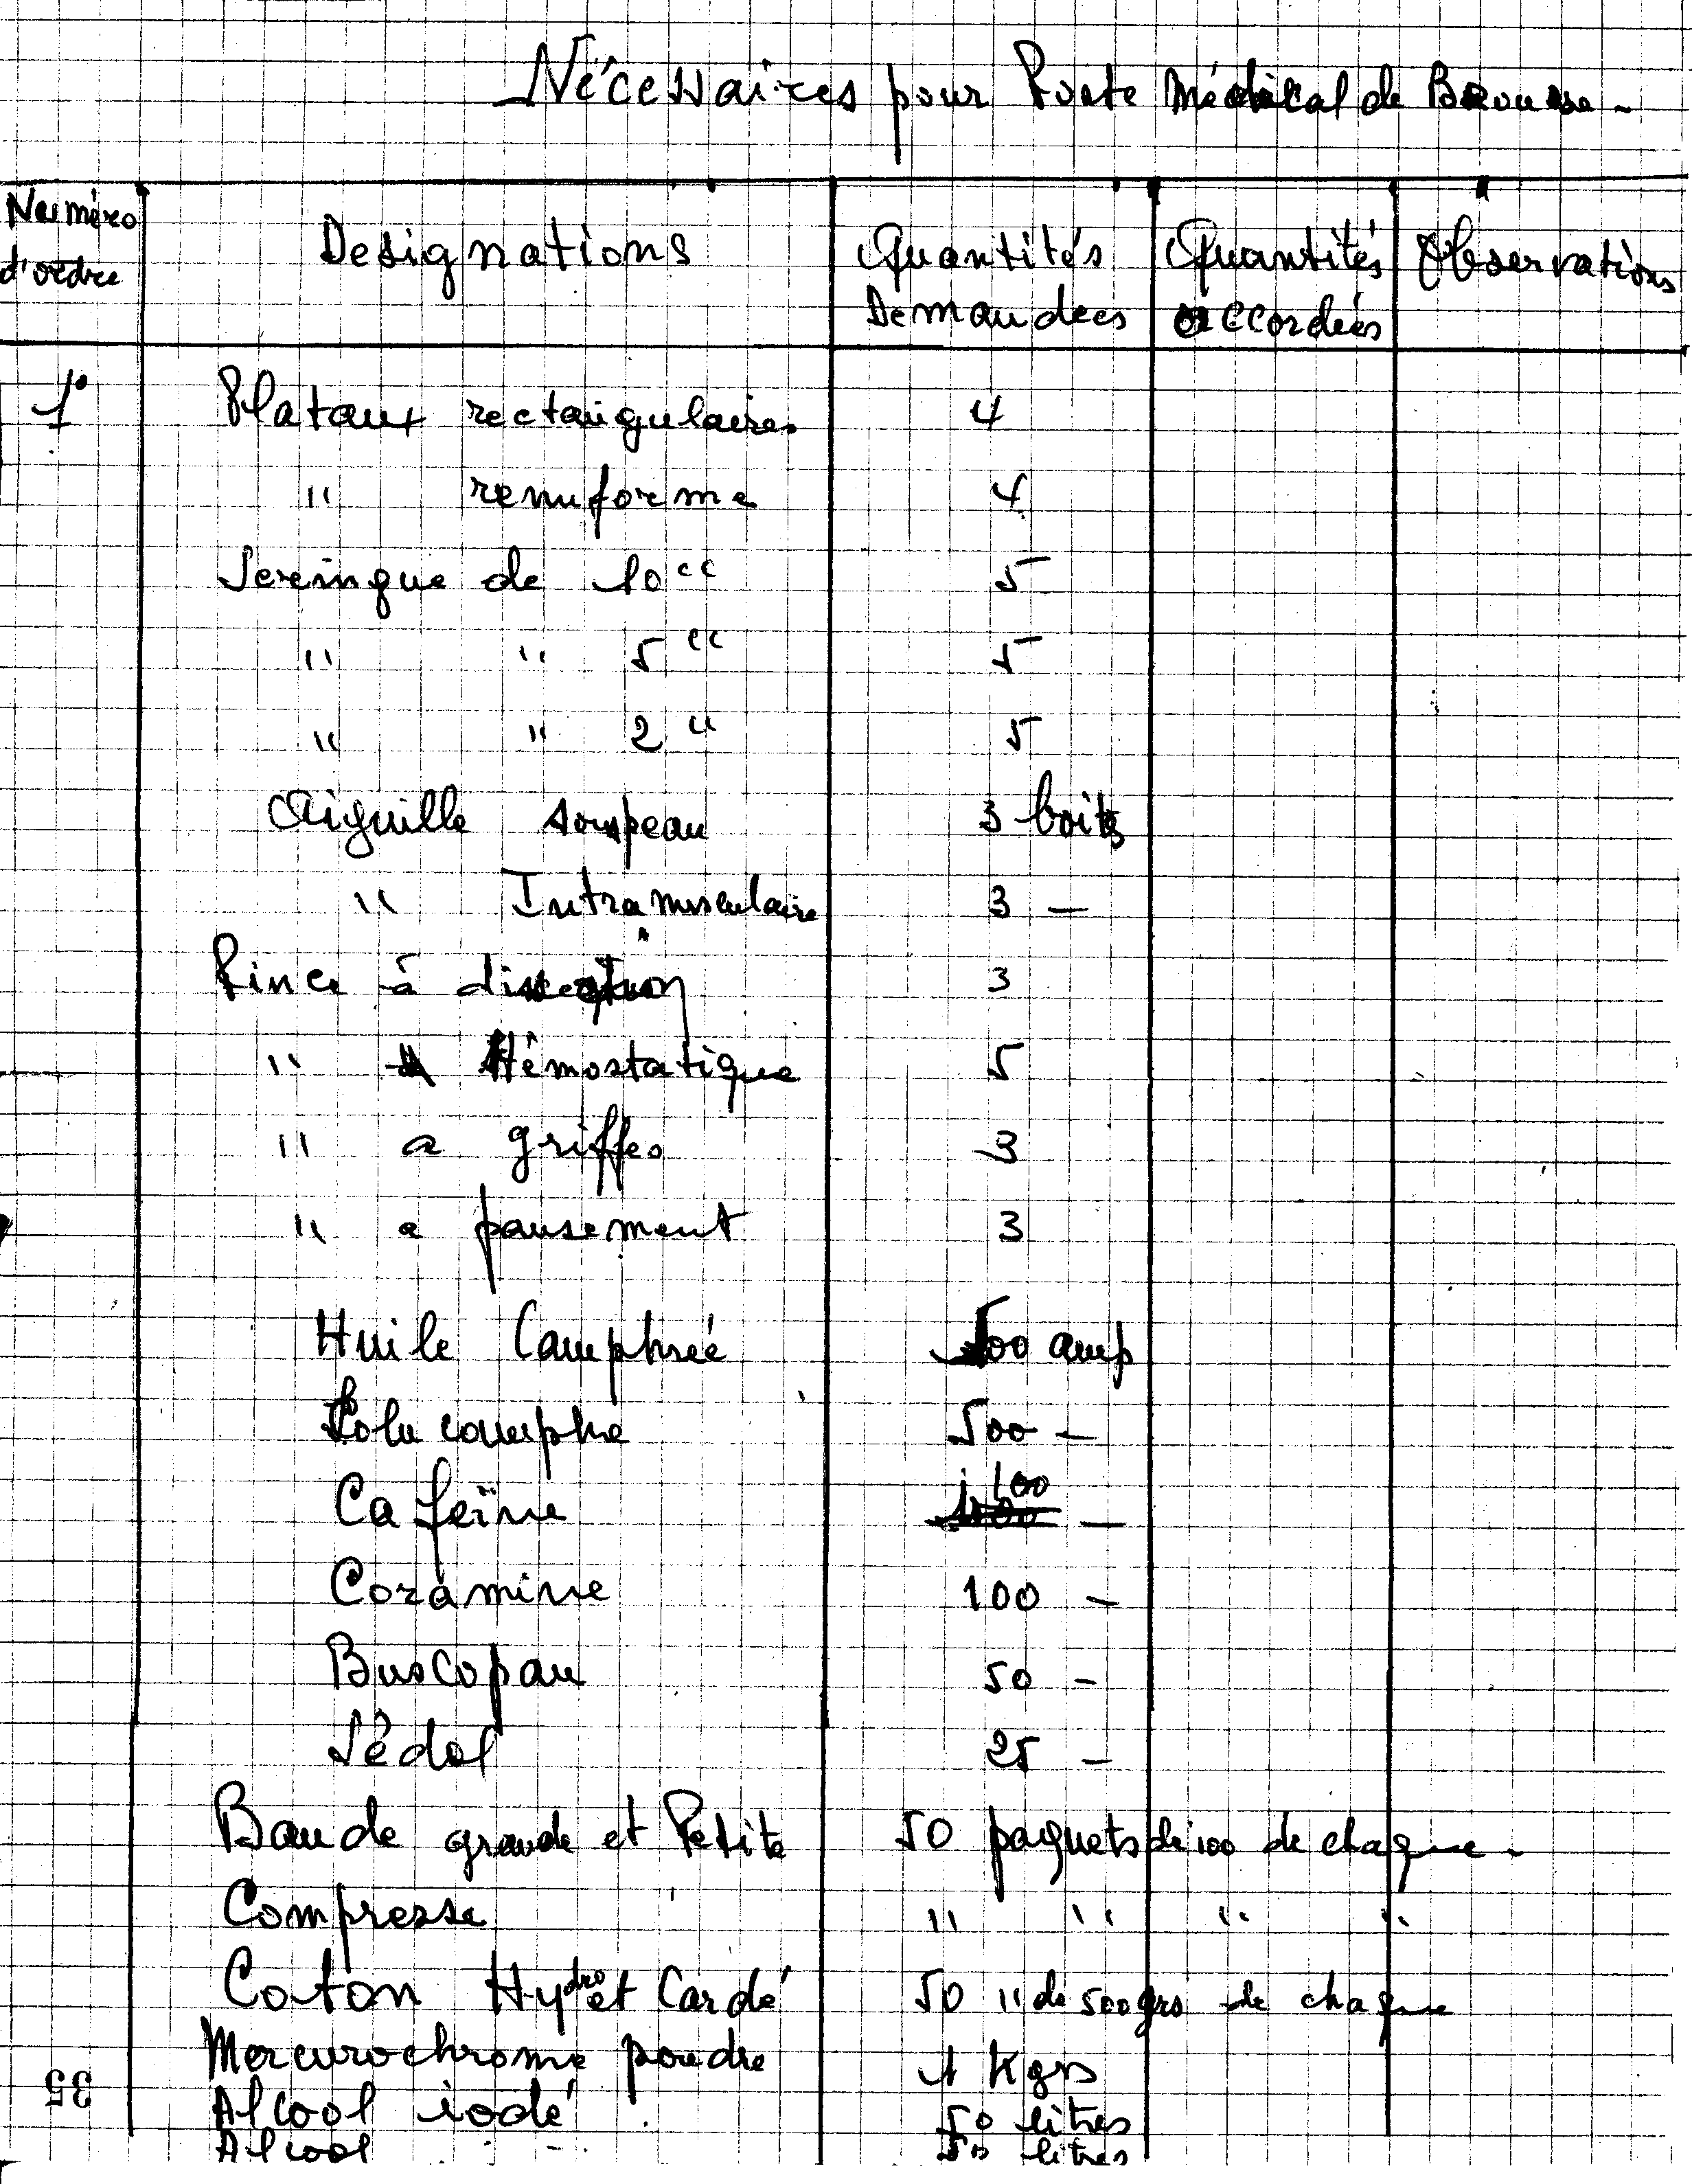 Nécessaires pour Poste Médical de Brousse -
Numéro d'ordre Designations Quantités Demandées Quantités accordées Observations
1° Plataux rectangulaires 4
" reniforme 4
Seringue de 10 cc 5
" " 5 cc 5
" " 2 " 5
Aiguille souspeau 3 boites
" Intramusculaire 3 —
Pince à dissection 3
" Hémostatique 5
" a griffes 3
" a pansement 3
Huile Camphrée 500 amp
Solu camphre 500 —
Cafeïne 100 —
Coramine 100 —
Buscopan 50 —
Sédol 25 —
Bande grande et Petite 50 paquets de 100 de chaque -
Compresse " " " "
Coton Hydro et Cardé 50 " de 500 grs de chaque
Mercurochrome poudre 1 Kgrs
Alcool iodé 50 litres
Alcool 50 litres
35